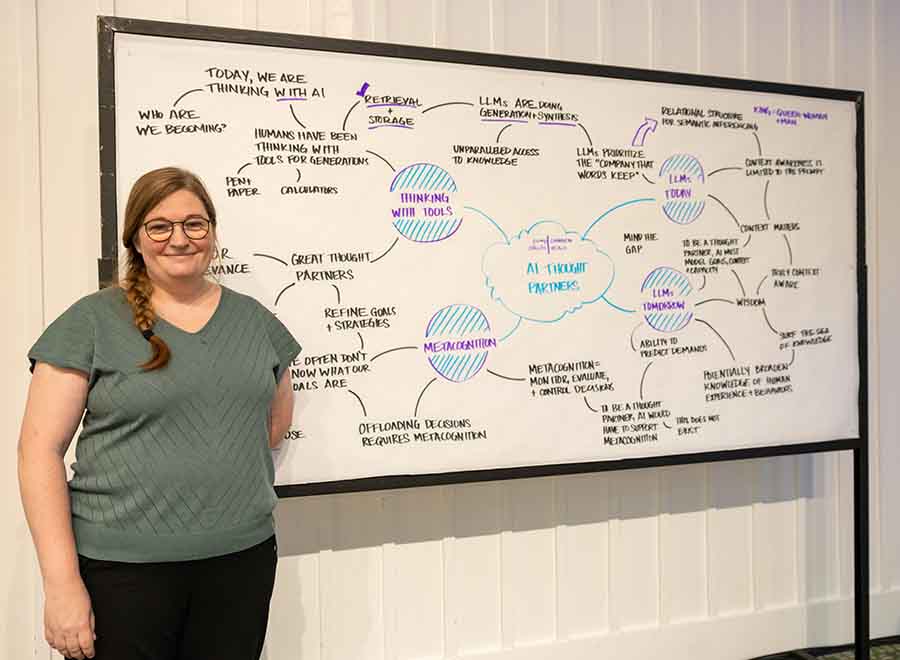 TODAY, WE ARE
THINKING WITH AI
WHO ARE
WE BECOMING?
HUMANS HAVE BEEN
THINKING WITH
TOOLS FOR GENERATIONS
PEN +
PAPER
CALCULATORS
RETRIEVAL
+
STORAGE
LLMs ARE DOING
GENERATION + SYNTHESIS
UNPARALLELED ACCESS
TO KNOWLEDGE
LLMs PRIORITIZE
THE "COMPANY THAT
WORDS KEEP"
RELATIONAL STRUCTURE
FOR SEMANTIC INFERENCING
KING = QUEEN - WOMAN
+ MAN
CONTEXT AWARENESS IS
LIMITED TO THE PROMPT
THINKING
WITH TOOLS
LLMs
TODAY
CONTEXT MATTERS
MIND THE
GAP
TO BE A THOUGHT
PARTNER, AI MUST
MODEL GOALS, CONTEXT
TRULY CONTEXT
AWARE
AI THOUGHT
PARTNERS
GREAT THOUGHT
PARTNERS
REFINE GOALS
+ STRATEGIES
OFTEN DON'T
WHAT OUR
ARE
METACOGNITION
OFFLOADING DECISIONS
REQUIRES METACOGNITION
METACOGNITION =
MONITOR, EVALUATE,
+ CONTROL DECISIONS
TO BE A THOUGHT
PARTNER, AI WOULD
HAVE TO SUPPORT
METACOGNITION
THIS DOES NOT
EXIST
LLMs
TOMORROW
WISDOM
SURF THE SEA
OF KNOWLEDGE
ABILITY TO
PREDICT DEMANDS
POTENTIALLY BROADEN
KNOWLEDGE OF HUMAN
EXPERIENCE + BEHAVIORS